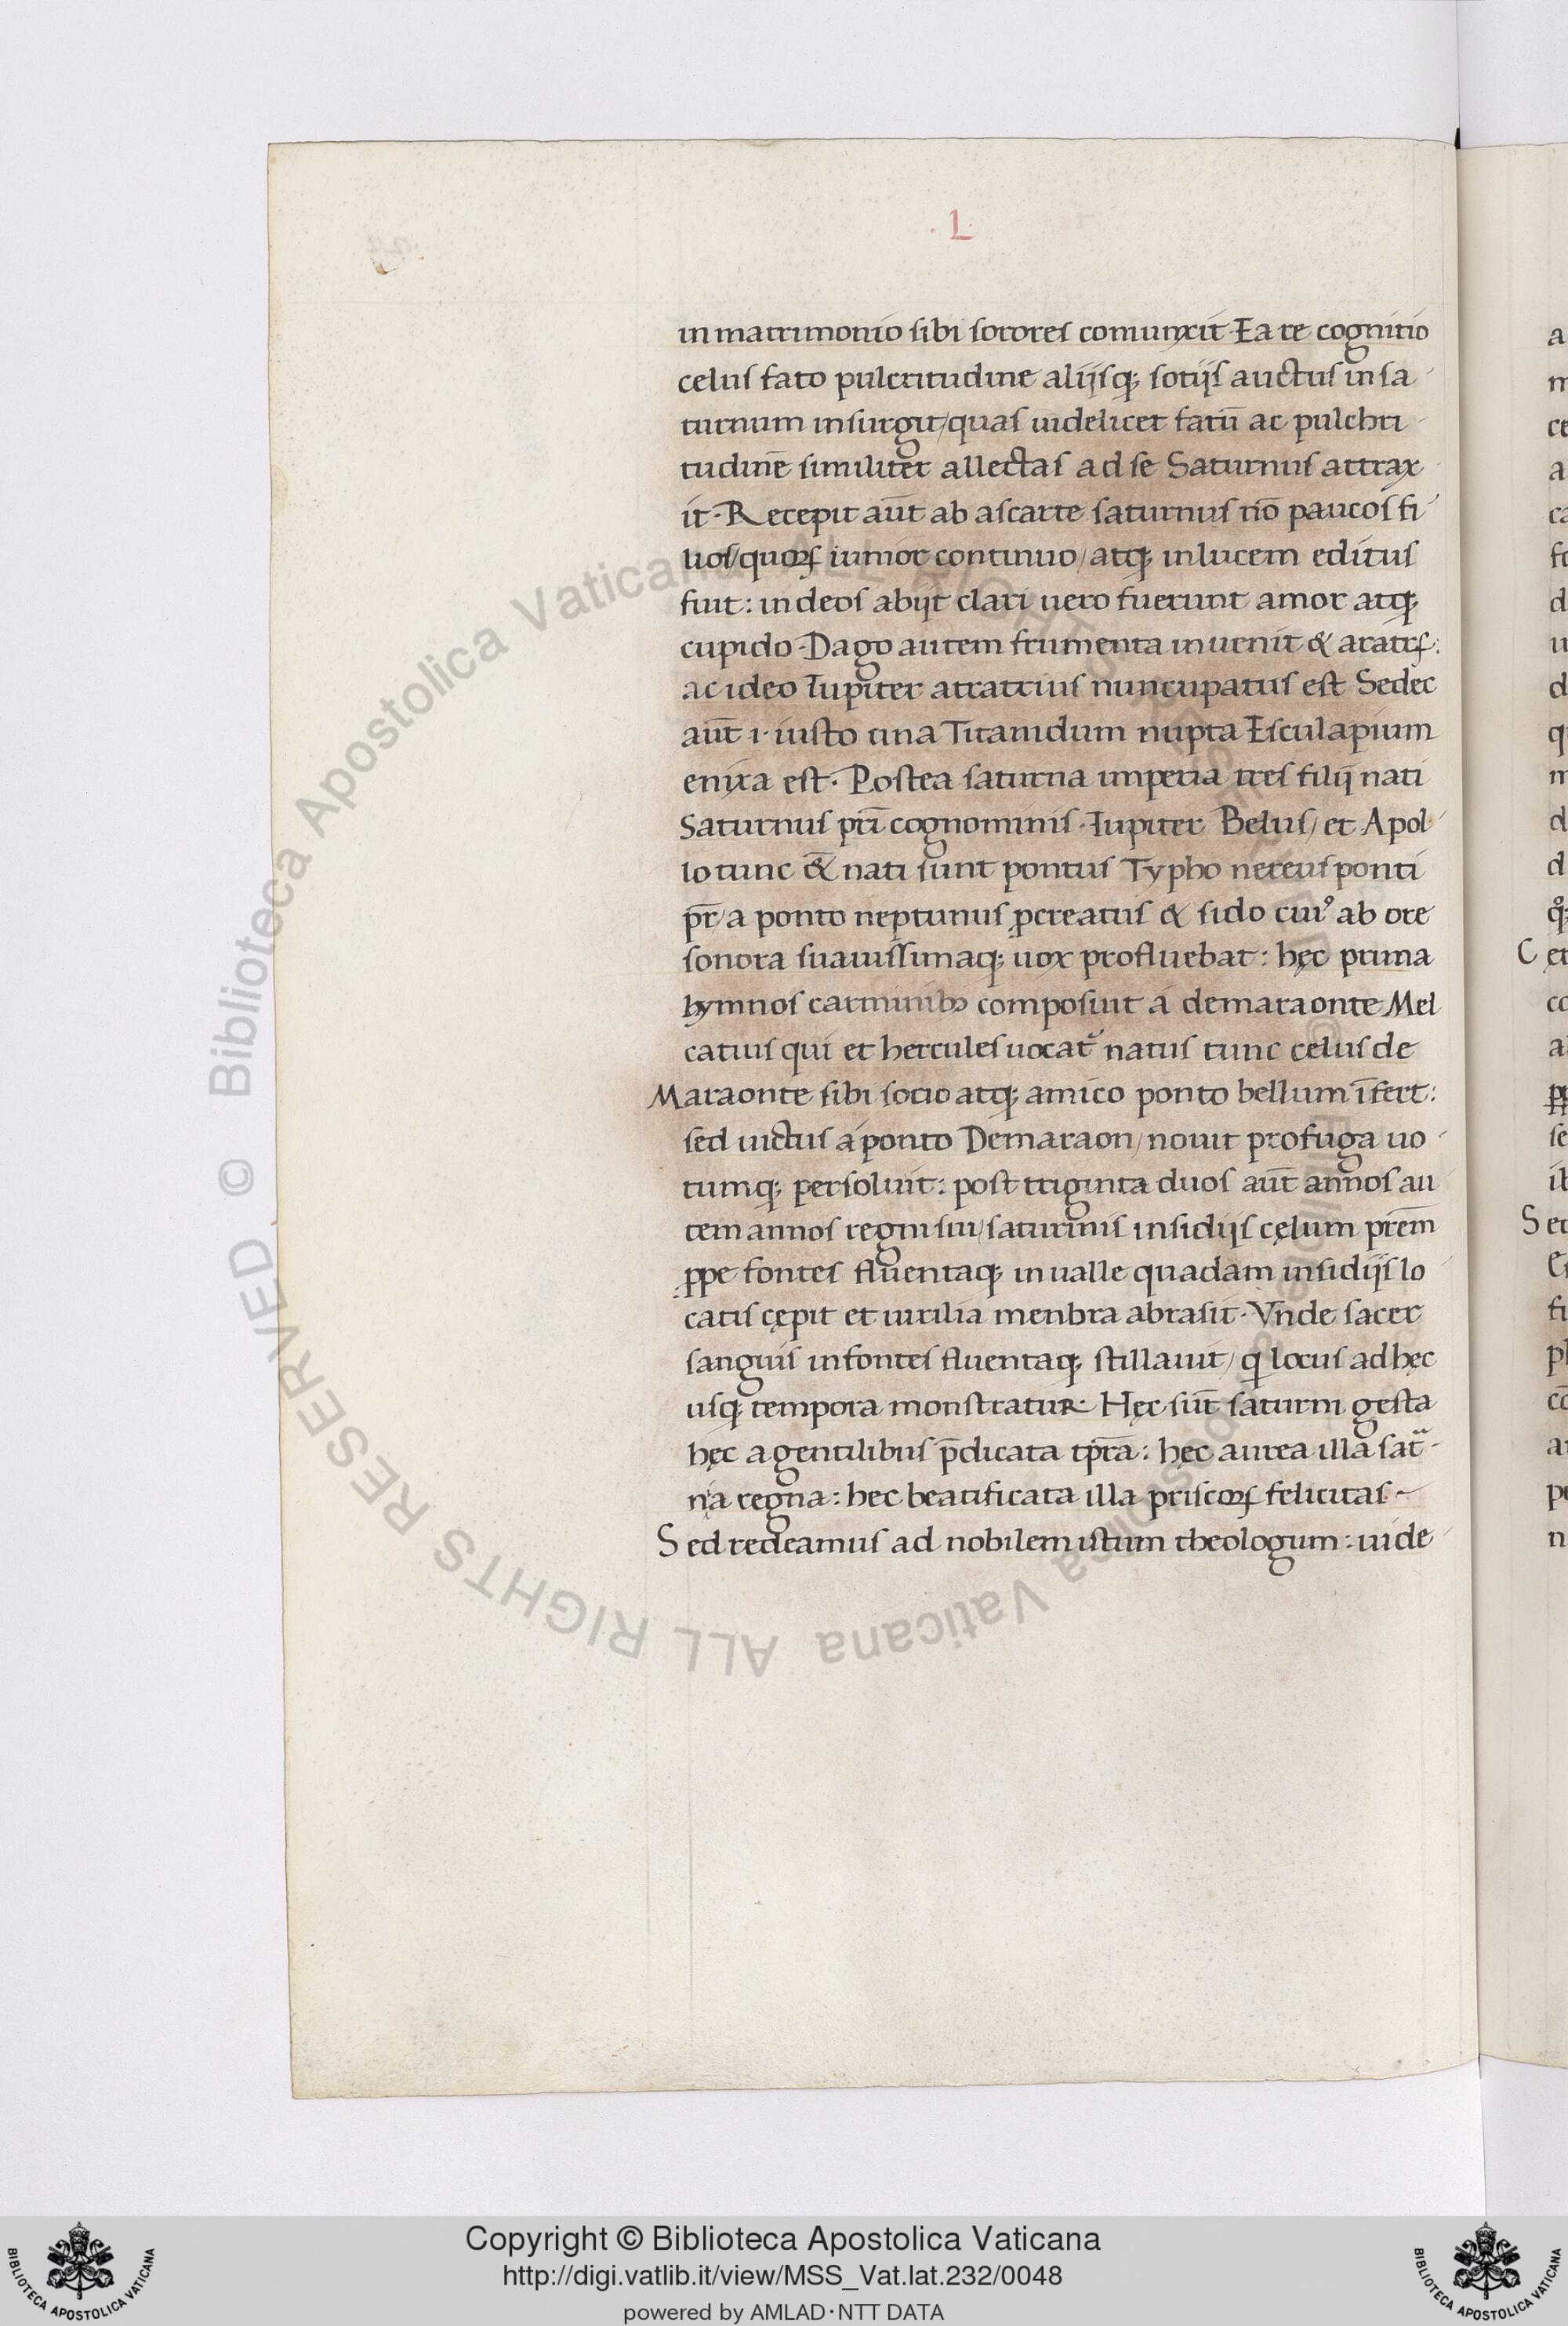 . L
in matrimonio sibi sorores comunxit · Ea re cognitio
celus fato pulcritudine aliisq; sotiis auctus in sa
turnum insurgit / quas uidelicet fatū ac pulchri
tudinē similiter allectas ad se Saturnus attrax
it · Recepit aūt ab ascarte saturnus nō paucos fi
lios / quoꝝ iunior continuo / atq; in lucem editus
fuit : in deos abiit clari uero fuerunt amor atq;
cupido · Dago autem frumenta inuenit & aratrꝝ :
ac ideo Iupiter aratrius nuncupatus est Sedec
aūt i · iusto una Titanidum nupta Esculapium
enixa est · Postea saturna imperia tres filii nati
Saturnus pr̄i cognominis · Iupiter Belus / et Apol
lo tunc & nati sunt pontus Typho nereus ponti
pr̄ / a ponto neptunus ꝓcreatus & sido cuiꝰ ab ore
sonora suauissimaq; uox profluebat : hęc prima
hymnos carminibꝫ composuit a demaraonte Mel
catius qui et hercules uocat᷑ natus tunc celus de
Maraonte sibi socio atq; amico ponto bellum īfert :
sed uictus a ponto Demaraon / nouit profuga uo
tumq; persoluit : post triginta duos aūt annos au
tem annos regni sui / saturnus insidiis cęlum prēm
ꝓpe fontes fluentaq; in ualle quadam insidiis lo
catis cępit et uirilia menbra abrasit · Vnde sacer
sanguis in fontes fluentaq; stillauit / q locus ad hęc
usq; tempora monstratur · Hęc sūt saturni gesta
hęc a gentilibus p̄dicata tp̄ra : hęc aurea illa sat᷑
nia regna : hec beatificata illa priscoꝝ felicitas
Sed redeamus ad nobilem istum theologum : uide
a
m
ce
a
ca
d
u
d
q
m
d
d
C et
co
a
se
ib
S ed
fu
ph
a
pe
n
© Biblioteca Apostolica Vaticana ALL RIGHTS RESERVED
© Biblioteca Apostolica Vaticana ALL RIGHTS RESERVED
BIBLIOTECA APOSTOLICA VATICANA
Copyright © Biblioteca Apostolica Vaticana
http://digi.vatlib.it/view/MSS_Vat.lat.232/0048
powered by AMLAD·NTT DATA
BIBLIOTECA APOSTOLICA VATICANA